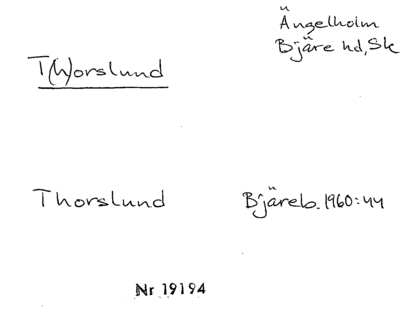 Ängelholm
Bjäre hd, Sk
T(h)orslund
Thorslund Bjäreb. 1960:44
Nr 19194